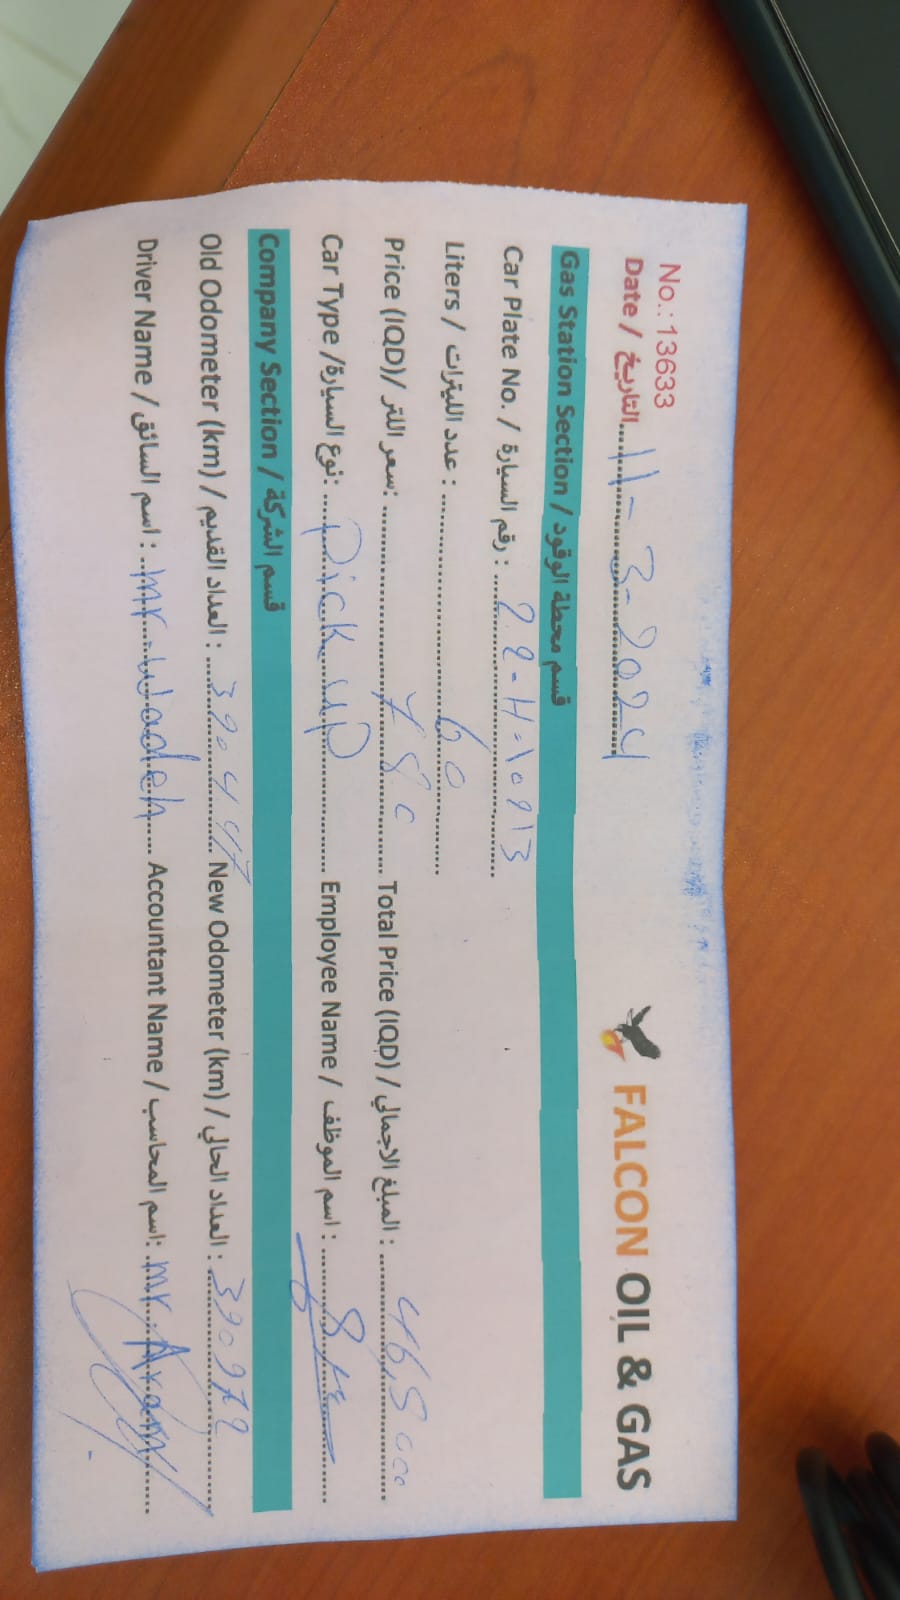 No.: 13633
FALCON OIL & GAS
Date / التاريخ 11-3-2024
Gas Station Section / قسم محطة الوقود
Car Plate No. / رقم السيارة : 22-H-10913
Liters / عدد الليترات : 60
Price (IQD)/ سعر اللتر: 780 Total Price (IQD) / المبلغ الاجمالي : 46,800
Car Type /نوع السيارة: Pick up Employee Name / اسم الموظف :
Company Section / قسم الشركة
Old Odometer (km) / العداد القديم : 390447 New Odometer (km) / العداد الحالي : 390972
Driver Name / اسم السائق : mr. Wadeh Accountant Name / اسم المحاسب: mr. Aram